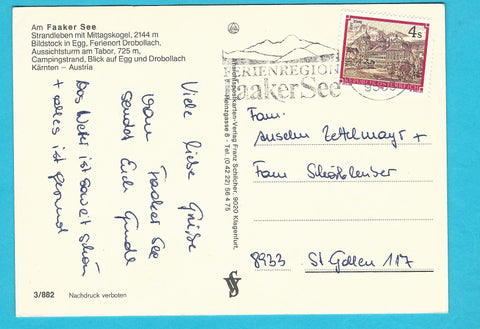 Am Faaker See
Strandleben mit Mittagskogel, 2144 m
Bildstock in Egg, Ferienort Drobollach,
Aussichtsturm am Tabor, 725 m,
Campingstrand, Blick auf Egg und Drobollach
Kärnten – Austria
Viele liebe Grüße
vom Faaker See
sendet Euch
Das Wetter ist soweit schön
+ alles ist gesund
3/882
Nachdruck verboten
Ansichtskarten-Verlag Franz Schilcher, 9020 Klagenfurt,
gasse 8 · Tel. (0 42 22) 56 4 75
FERIENREGION
Faaker See
4 S
REPUBLIK ÖSTERREICH
Fam.
Anselm Zettelmayr +
Fam
8933 St Gallen 117